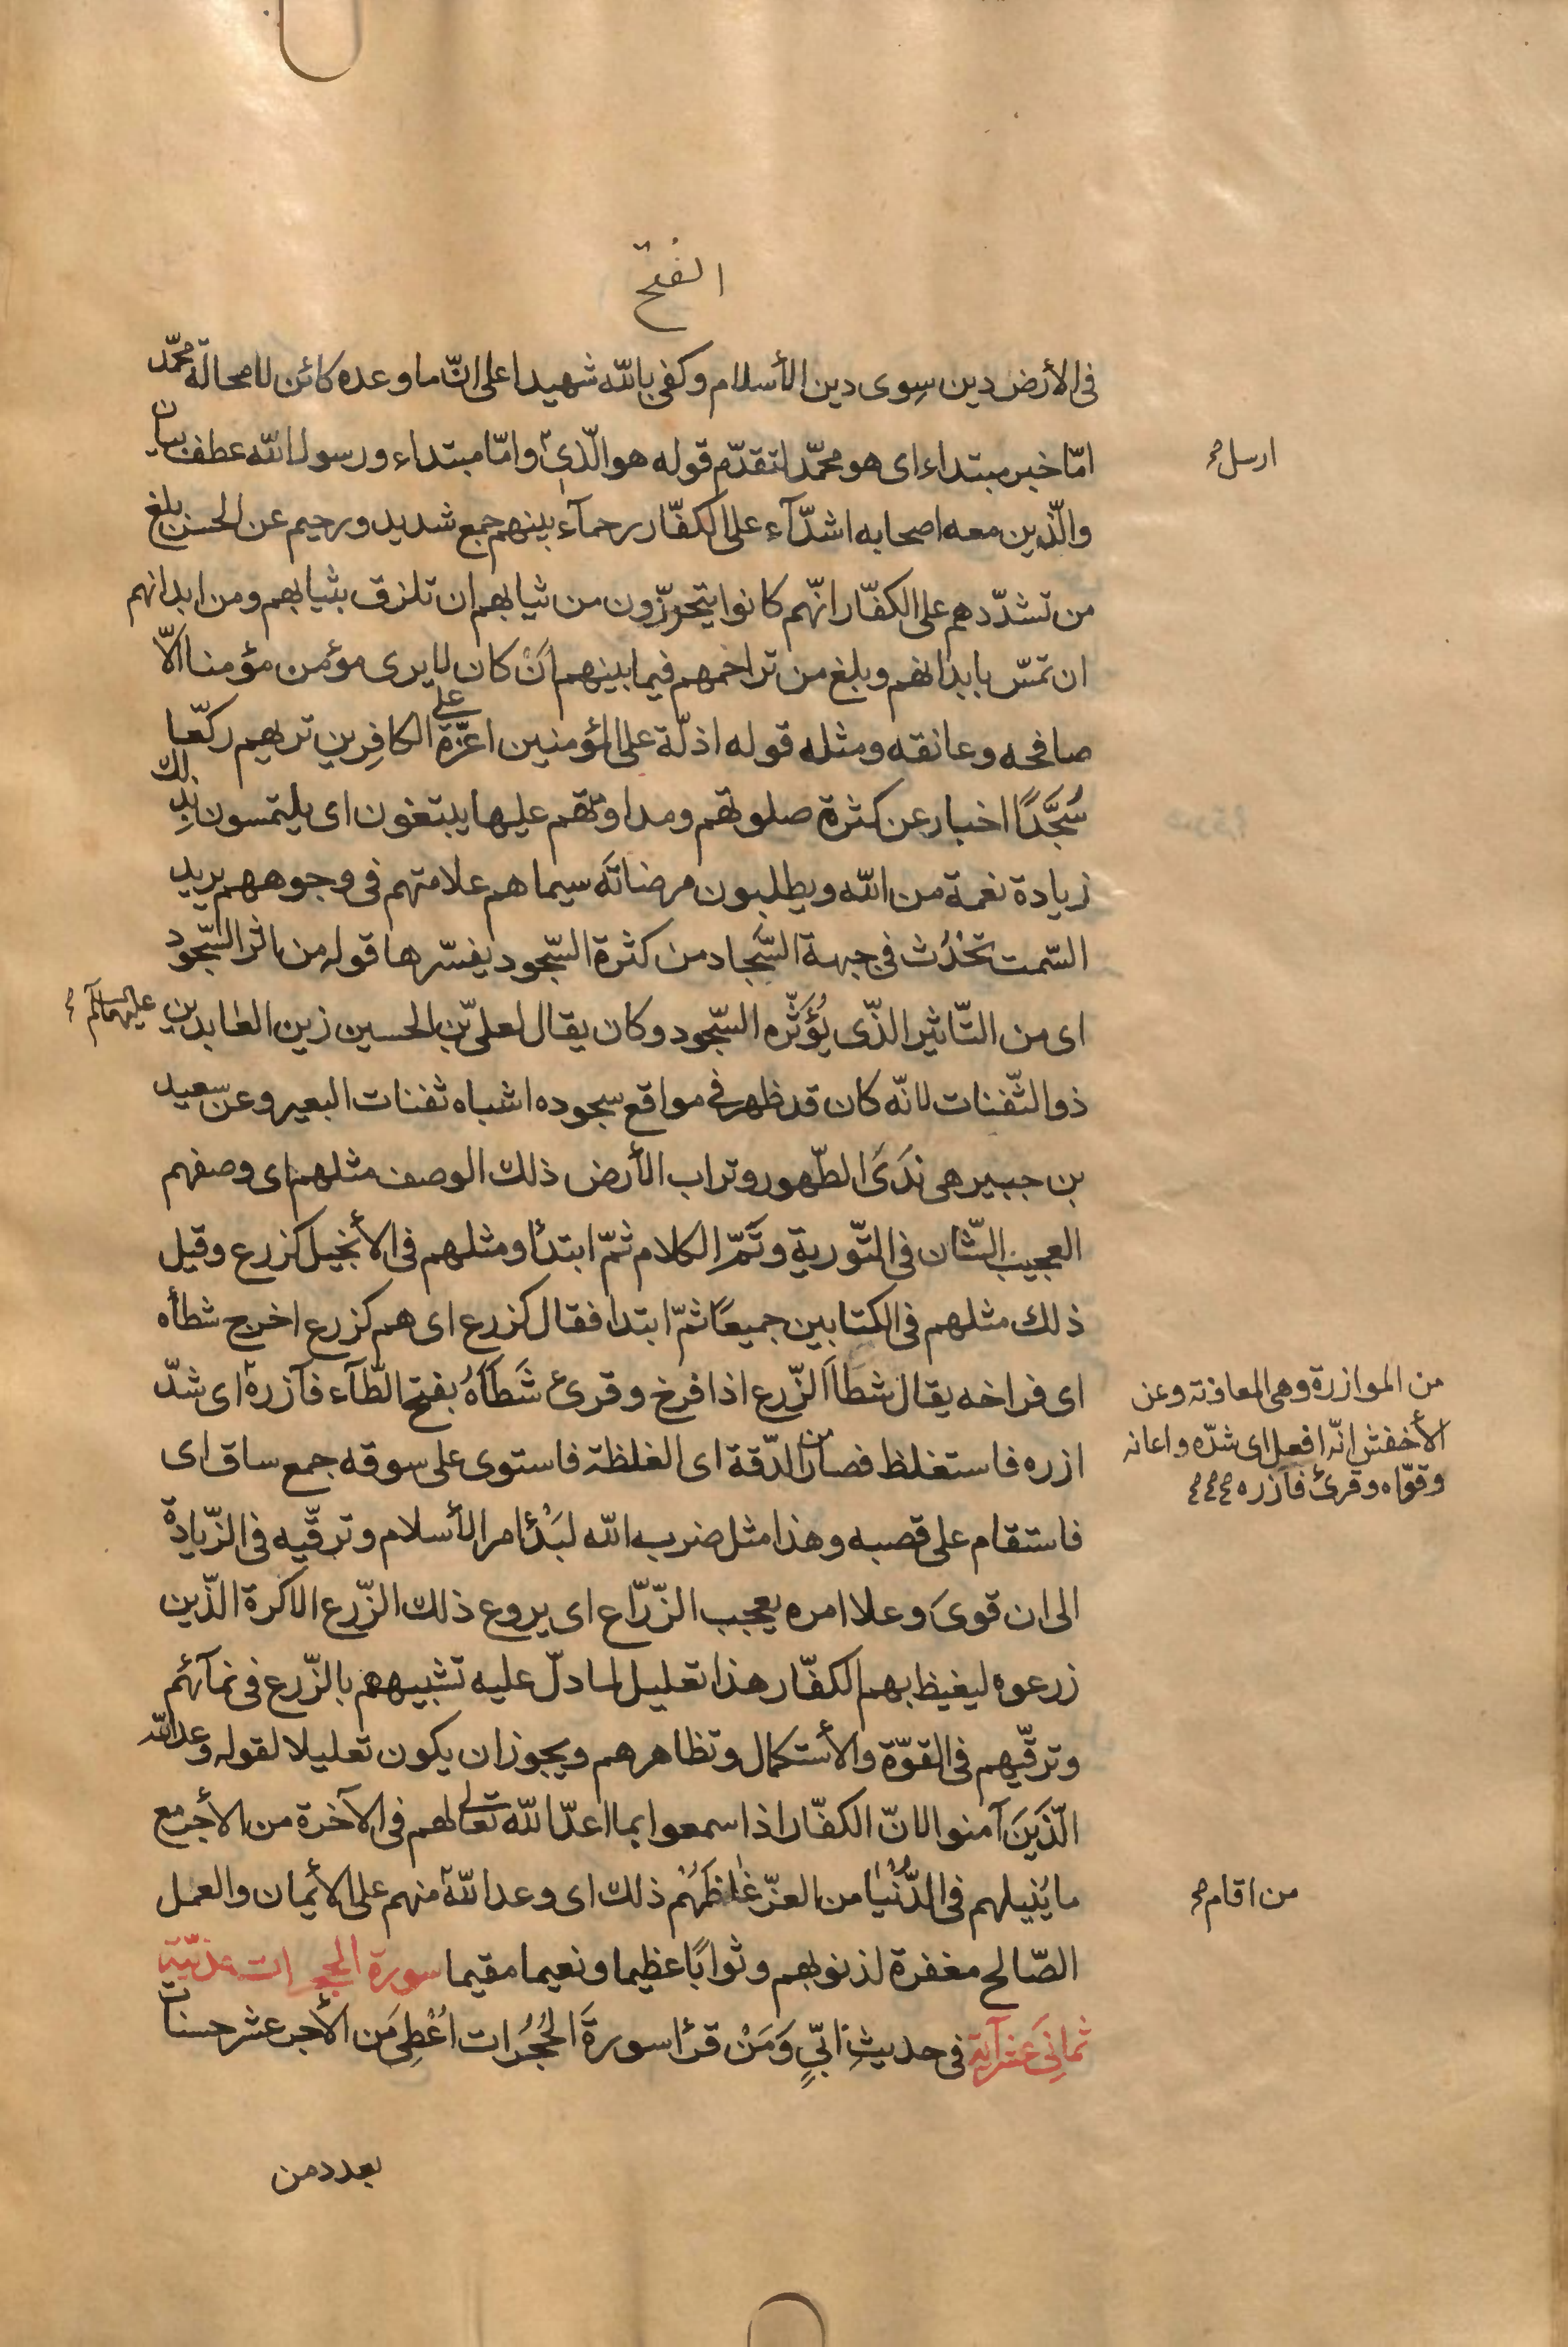 الفتح
فى الأرض دين سِوى دين الأسلام وكفى بالله شهيدا على انّ ما وعده كائن لا محالة محمّد
امّا خبر مبتداء اى هو محمّد لتقدّم قوله هو الّذى وامّا مبتداء ورسول الله عطف بيان
ارسل صح
والّذين معه اصحابه اشدّآء على الكفّار رحمآء بينهم جمع شديد ورحيم عن الحسن بلغ
من تشدّدهم على الكفّار انّهم كانوا يتحرّزون من ثيابهم ان تلزق بثيابهم ومن ابدانهم
ان تمسّ بابدانهم وبلغ من تراحمهم فيما بينهم اَنْ كان لا يرى مؤمن مؤمنا الّا
صافحه وعانقه ومثله قوله اذلّة على المؤمنين اعزّة على الكافِرين تريهم ركّعا
سُجَّدًا اخبار عن كثرة صلوتهم ومداومتهم عليها يبتغون اى يلتمسون بذِلك
زيادة نعمة من الله ويطلبون مرضاتَه سيماهم علامتهم فى وجوههم يريد
السّمت تَحْدُث فى جبهة السَّجاد من كثرة السّجود يفسّرها قوله من اثر السّجود
اى من التّاثير الذّى يُؤَثّره السّجود وكان يقال لعلىّ بن الحسين زين العابدين عليهما السلام
ذو الثّفنات لانّه كان قد ظهر فى مواقع سجوده اشباه ثفنات البعير وعن سعيد
بن جبير هى نَدَى الطّهور وتراب الأرض ذلك الوصف مثلهم اى وصفهم
العجيب الشّان فى التّورية وتَمّ الكلام ثمّ ابتدأ ومثلهم فى الأنجيل كزرع وقيل
ذلك مثلهم فى الكتابين جميعًا ثمّ ابتدا فقال كزرع اى هم كزرع اخرج شطأه
اى فراخه يقال شطَأَ الزّرع اذا فرخ وقرئ شَطَأَهُ بفتح الطّآء فآزره اى شدّ
من الموازرة وهى المعاونة وعن
الأخفش انّه افعل اى شدّه واعانه
وقوّاه وقرئ فازره صح صح صح
ازره فاستغلظ فصار من الدّقة اى الغلظة فاستوى على سوقه جمع ساق اى
فاستقام على قصبه وهذا مثل ضربه الله لبَدْئ امر الأسلام وترقّيه فى الزّيادة
الى ان قوىَ وعلا امره يعجب الزّرّاع اى يروع ذلك الزّرع الاكرة الّذين
زرعوه ليغيظ بهم الكفّار هذا تعليل لما دلّ عليه تشبيههم بالزّرع فى نمآئهم
وترقّيهم فى القوّة والأستكمال وتظاهرهم ويجوز ان يكون تعليلا لقوله وعد الله
الّذين آمنوا لانّ الكفّار اذا سمعوا بما اعدّ الله تعالى لهم فى الآخرة من الأجر مع
ما يُنيلهم فى الدُّنْيا من العزّ غاظَهُم ذلك اى وعد الله منهم على الأيمان والعمل
من اقام صح
الصّالح مغفرة لذنوبهم وثوابًا عظيما ونعيما مقيما سورة الحجرات مدنيّة
ثمانِىَ عشر آية فى حديثِ اُبّىٍ وَمَنْ قرأ سورةَ الحُجُرات اُعْطِىَ من الأجر عشر حسنات
بعدد من